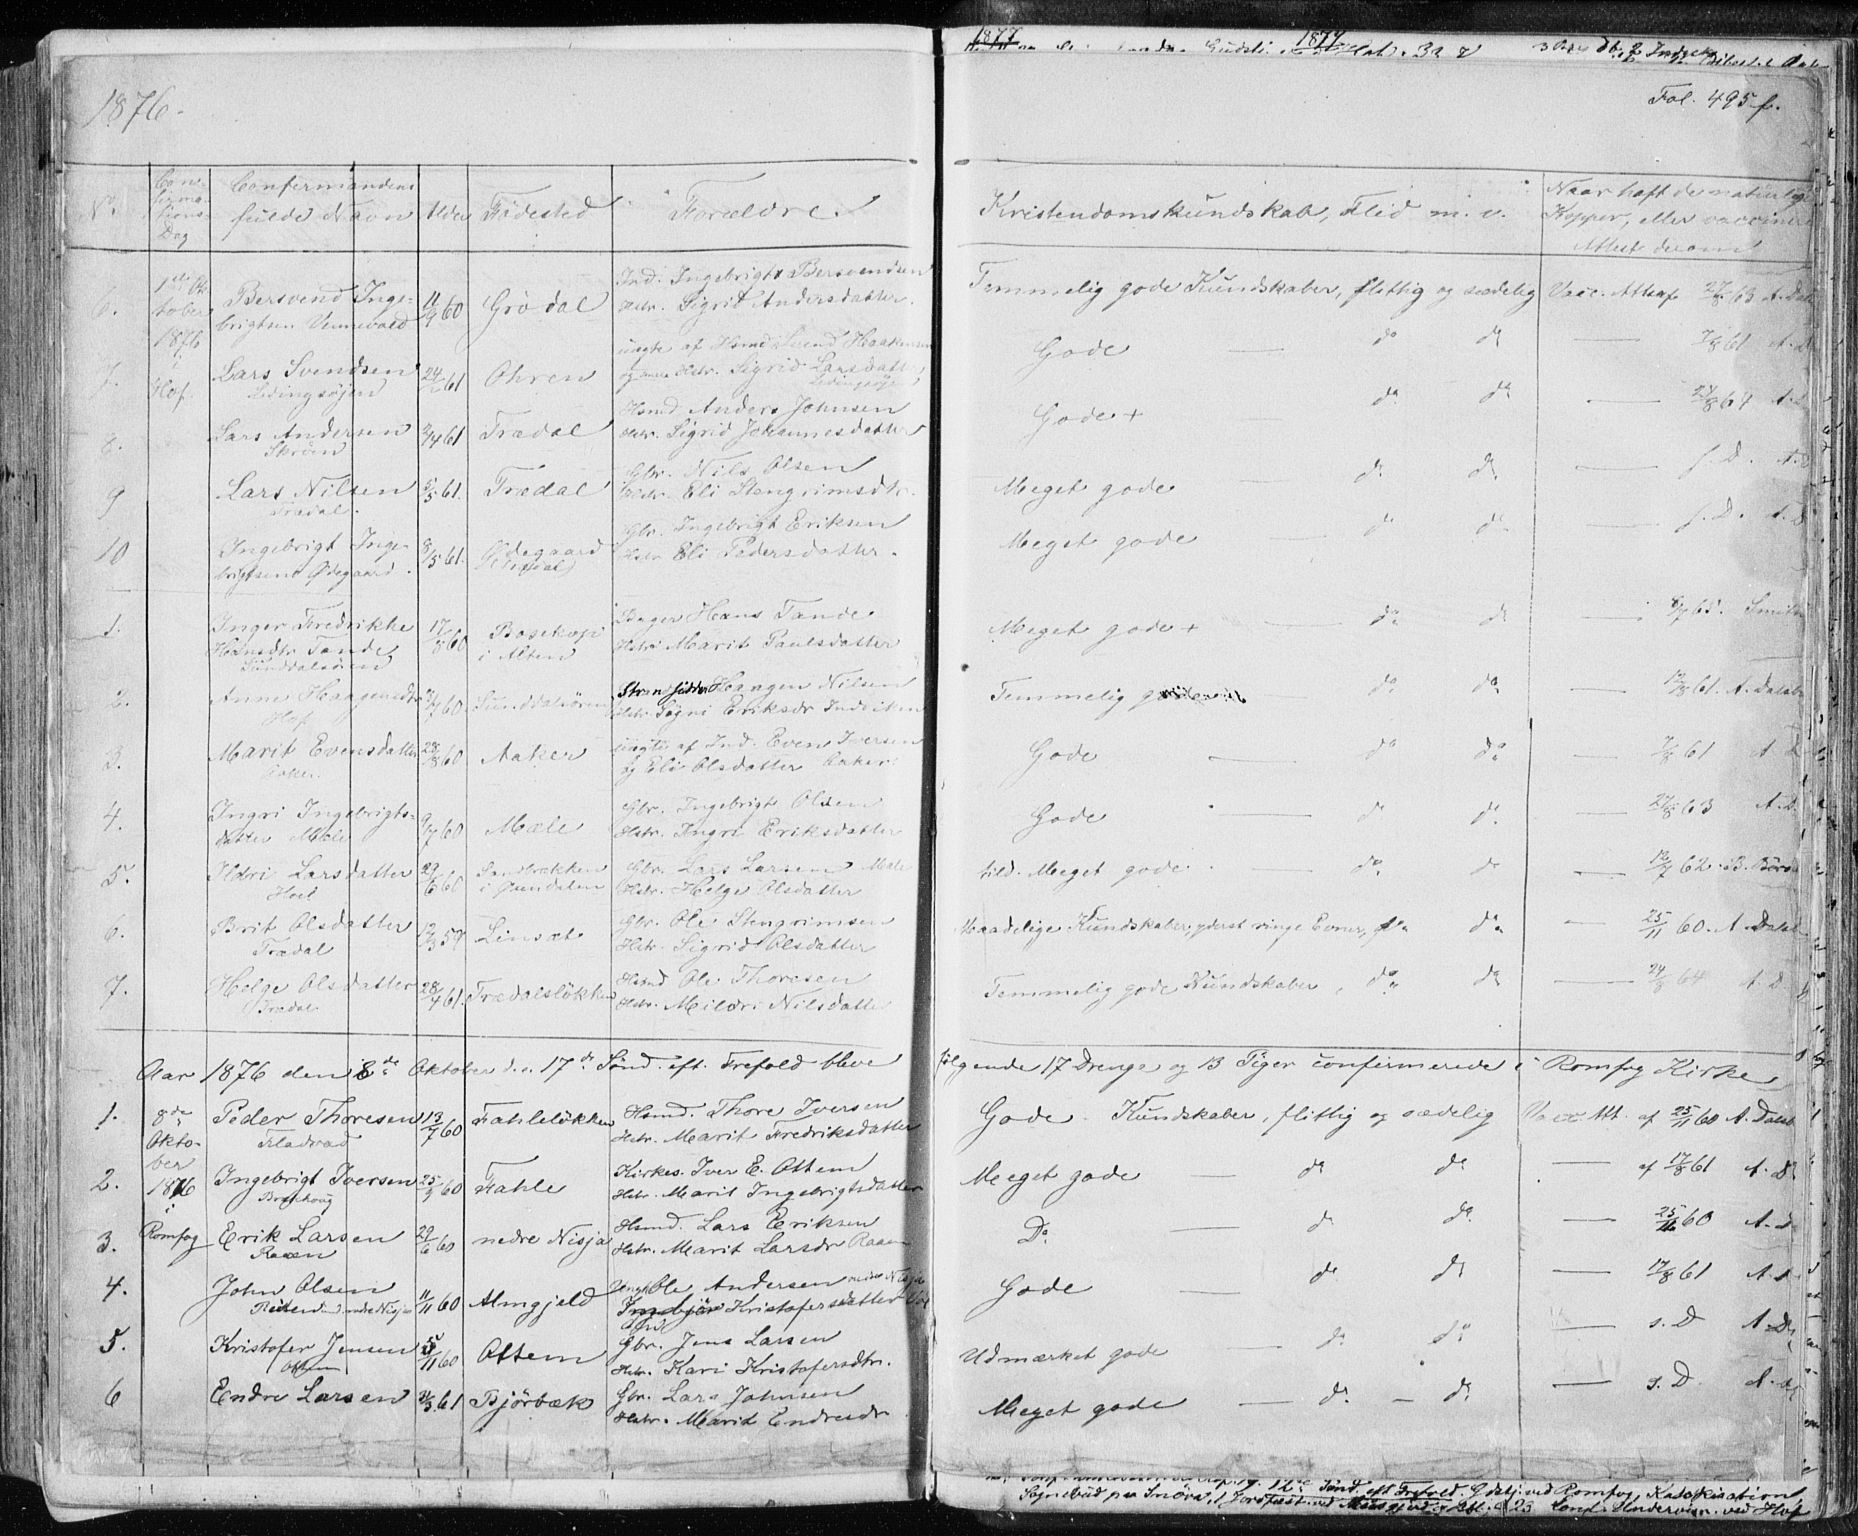 1876.
Fol. 495 f.
No. Confirmations Dag Confirmandens fulde Navn Alder Fødested Forældre. Kristendomskundskab, Flid m. v. Naar haft de naturlige Kopper, eller vaccinere Attest derom
6. 1ste Oktober 1876 i Hof. Bersvend Ingebrigtsen Vennevold 11/9 60 Grödal Ind. Ingebrigt Bersvendsen Hstr. Sigrid Andersdatter. Temmelig gode Kundskaber, flittig og sædelig Vacc. Att. af 27/8 63 A. Dahl
7. Lars Svendsen Ledingsøjen 24/ 61 Ohren uægte af Hsmd Svend Haakensen og Hstr. Sigrid Larsdatter Ledingsøjen Gode — do do — 7/8 61 A. D
8. Lars Andersen Skröen 2/4 61 Trædal Hsmd Anders Johnsen Hstr. Sigrid Johannesdatter Gode + do do — 21/8 61 A.
9 Lars Nilsen Trædal. 5/5 61. Trædal Gbr. Nils Olsen Hstr. Eli Stengrimsdtr. Meget gode do do — s. D. A. D
10 Ingebrigt Ingebrigtsen Ødegaard. 8/5 61. Ødegaard Gbr. Ingebrigt Eriksen Hstr. Eli Pedersdatter. Meget gode — do do — s. D. A. D
1. Inger Fredrikke Hansdtr Tande Sunddalsören 17/8 60 Bosekop i Alten Bager Hans Tande Hstr. Marit Paulsdatter Meget gode + do do — 65. Smith
2. Anne Haagensdtr Hof 60 Sunddalsören Strandsidder Haagen Nilsen Hstr. Signi Eriksdr Indviken Temmelig gode — do do — 61. A. Dahl
3. Marit Evensdatter Aaker 28/8 60 Aaker uægte af Ind. Even Iversen og Eli Olsdatter Aaker Gode — do do — 7/8 61 A. D
4. Ingri Ingebrigtsdatter Mæle 9/7 60 Mæle Gbr. Ingebrigt Olsen Hstr. Ingri Eriksdatter Gode — do do. — 27/8 63 A. D.
5. Ildri Larsdatter Hoel 29/6 60 Sandbrækken i Øxendalen Gbr. Lars Larsen Hstr. Helge Olsdatter tild. Meget gode. — do do — 12/7 62. B.
6. Brit Olsdatter Trædal 12/3 59 Linsæt Gbr. Ole Stengrimsen Hstr. Sigrid Olsdatter Maadelige Kundskaber, yderst ringe Evner, do do — 25/11 60. A. Dahl
7. Helge Olsdatter Trædal 28/4 61. Trædalsløkken Hsmd Ole Thoresen Hstr. Mildri Nilsdatter Temmelig gode Kundskaber, do do — 24/8 64 A. D
Aar 1876 den 8de Oktober d. e. 17de Sönd. eft. Trefold. bleve følgende 17 Drenge og 13 Piger confirmerede i Romfog Kirke
1. 8de Oktober 1876 i Romfog Peder Thoresen Fladvad 13/7 60 Fahleløkken Hsmd. Thore Iversen Hstr. Marit Fredriksdatter Gode Kundskaber, flittig og sædelig Vacc. Att. af 25/11 60 A. Dahl
2. Ingebrigt Iversen 25/ 60 Fahle Kirkes. Iver E. Ottem Hstr. Marit Ingebrigtsdatter Meget gode — do do — af 17/8 61 A. D
3. Erik Larsen Raaen 29/6 60 nedre Nisja Hsmd. Lars Eriksen Hstr. Marit Larsdr Raaen Do. — do do — 25/11 60 A. D
4. John Olsen 11/11 60 Almgjeld Ole Andersen nedre Nisja Kristofersdatter Gode — do do — 17/8 61 A. D
5. Kristofer Jensen Ottem 5/11 60 Ottem Gbr. Jens Larsen Hstr. Kari Kristofersdtr. Udmærket gode — do do — s. D A. D
6 Endre Larsen 61 Bjørbæk Gbr. Lars Johnsen Hstr. Marit Endresdr Meget gode — do — do — s. D. A. D
12te Sönd. eft. Trefold. Gdstj. ved Romfog, Katekisation,